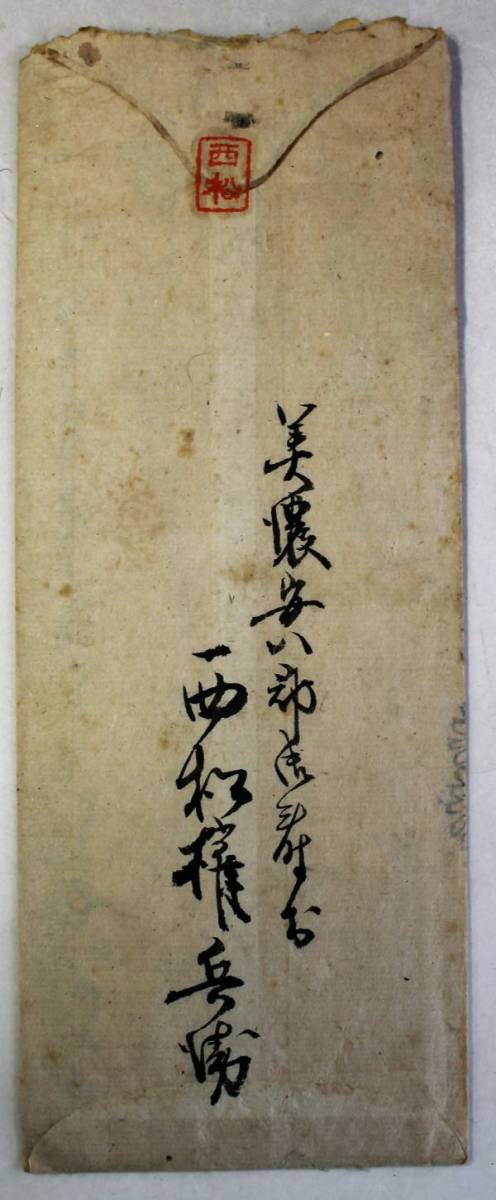 西松
美濃安八郡
西松権兵衛